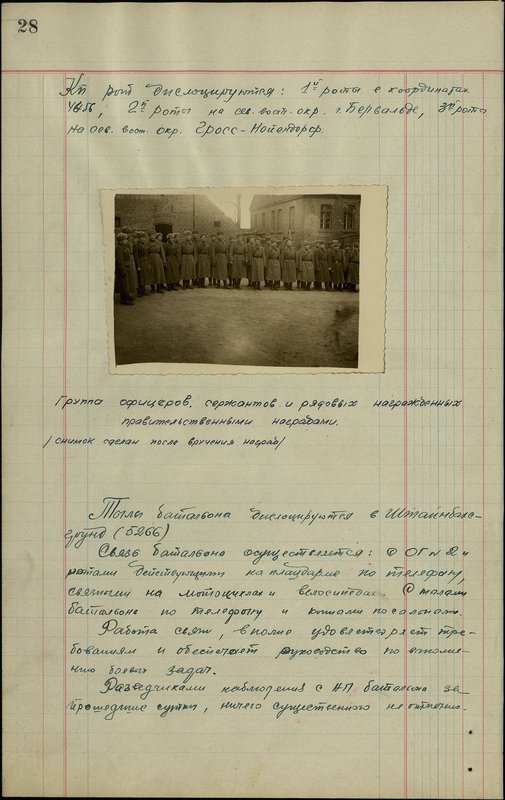 28
Кп рот дислоцируются: 1й роты в координатах
, 2й роты на сев. вост. окр. г. Бервальде, 3й рота
на сев. вост. окр. Гросс-Нойендорф.
Группа офицеров, сержантов и рядовых награжденных
правительственными наградами.
/снимок сделан после вручения наград/
Тылы батальона дислоцируются в Штайнбакс-
грунд (5266)
Связь батальона осуществляется: с и
ротами действующими на плацдарме по телефону,
связными на мотоциклах и велосипедах. С тылами
батальона по телефону и
Работа связи, вполне удовлетворяет тре-
бованиям и обеспечает руководство по выполне-
нию боевых задач.
Разведчиками наблюдения с НП батальона за
прошедшие сутки, ничего существенного не отмечено.